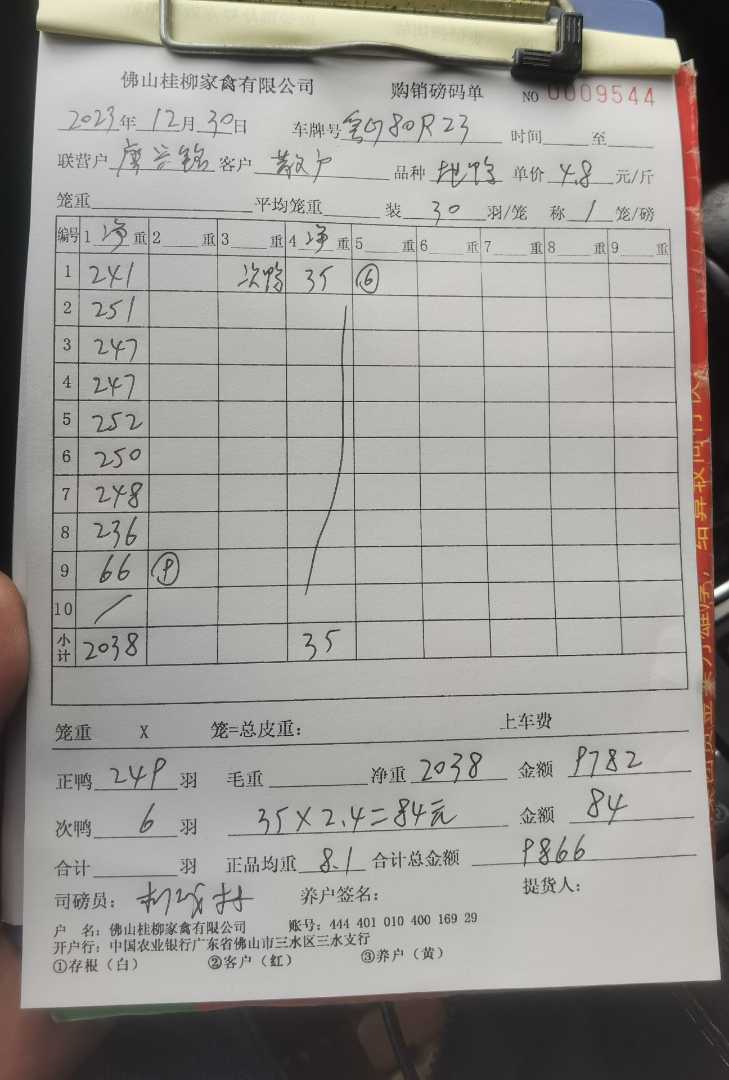 佛山桂柳家禽有限公司 购销磅码单 NO 0009544
2023年12月30日 车牌号 80R23 时间 至
联营户 客户 散户 品种 地鸭 单价 4.8 元/斤
笼重 平均笼重 装 30 羽/笼 称 1 笼/磅
编号 1 净 重 2 重 3 重 4 净 重 5 重 6 重 7 重 8 重 9 重
1 241 次鸭 35 ⑥
2 251
3 247
4 247
5 252
6 250
7 248
8 236
9 66 ⑨
10 /
小计 2038 35
笼重 X 笼=总皮重: 上车费
正鸭 249 羽 毛重 净重 2038 金额 9782
次鸭 6 羽 35×2.4=84元 金额 84
合计 羽 正品均重 8.1 合计总金额 9866
司磅员: 养户签名: 提货人:
户 名: 佛山桂柳家禽有限公司 账号: 444 401 010 400 169 29
开户行: 中国农业银行广东省佛山市三水区三水支行
①存根(白) ②客户(红) ③养户(黄)